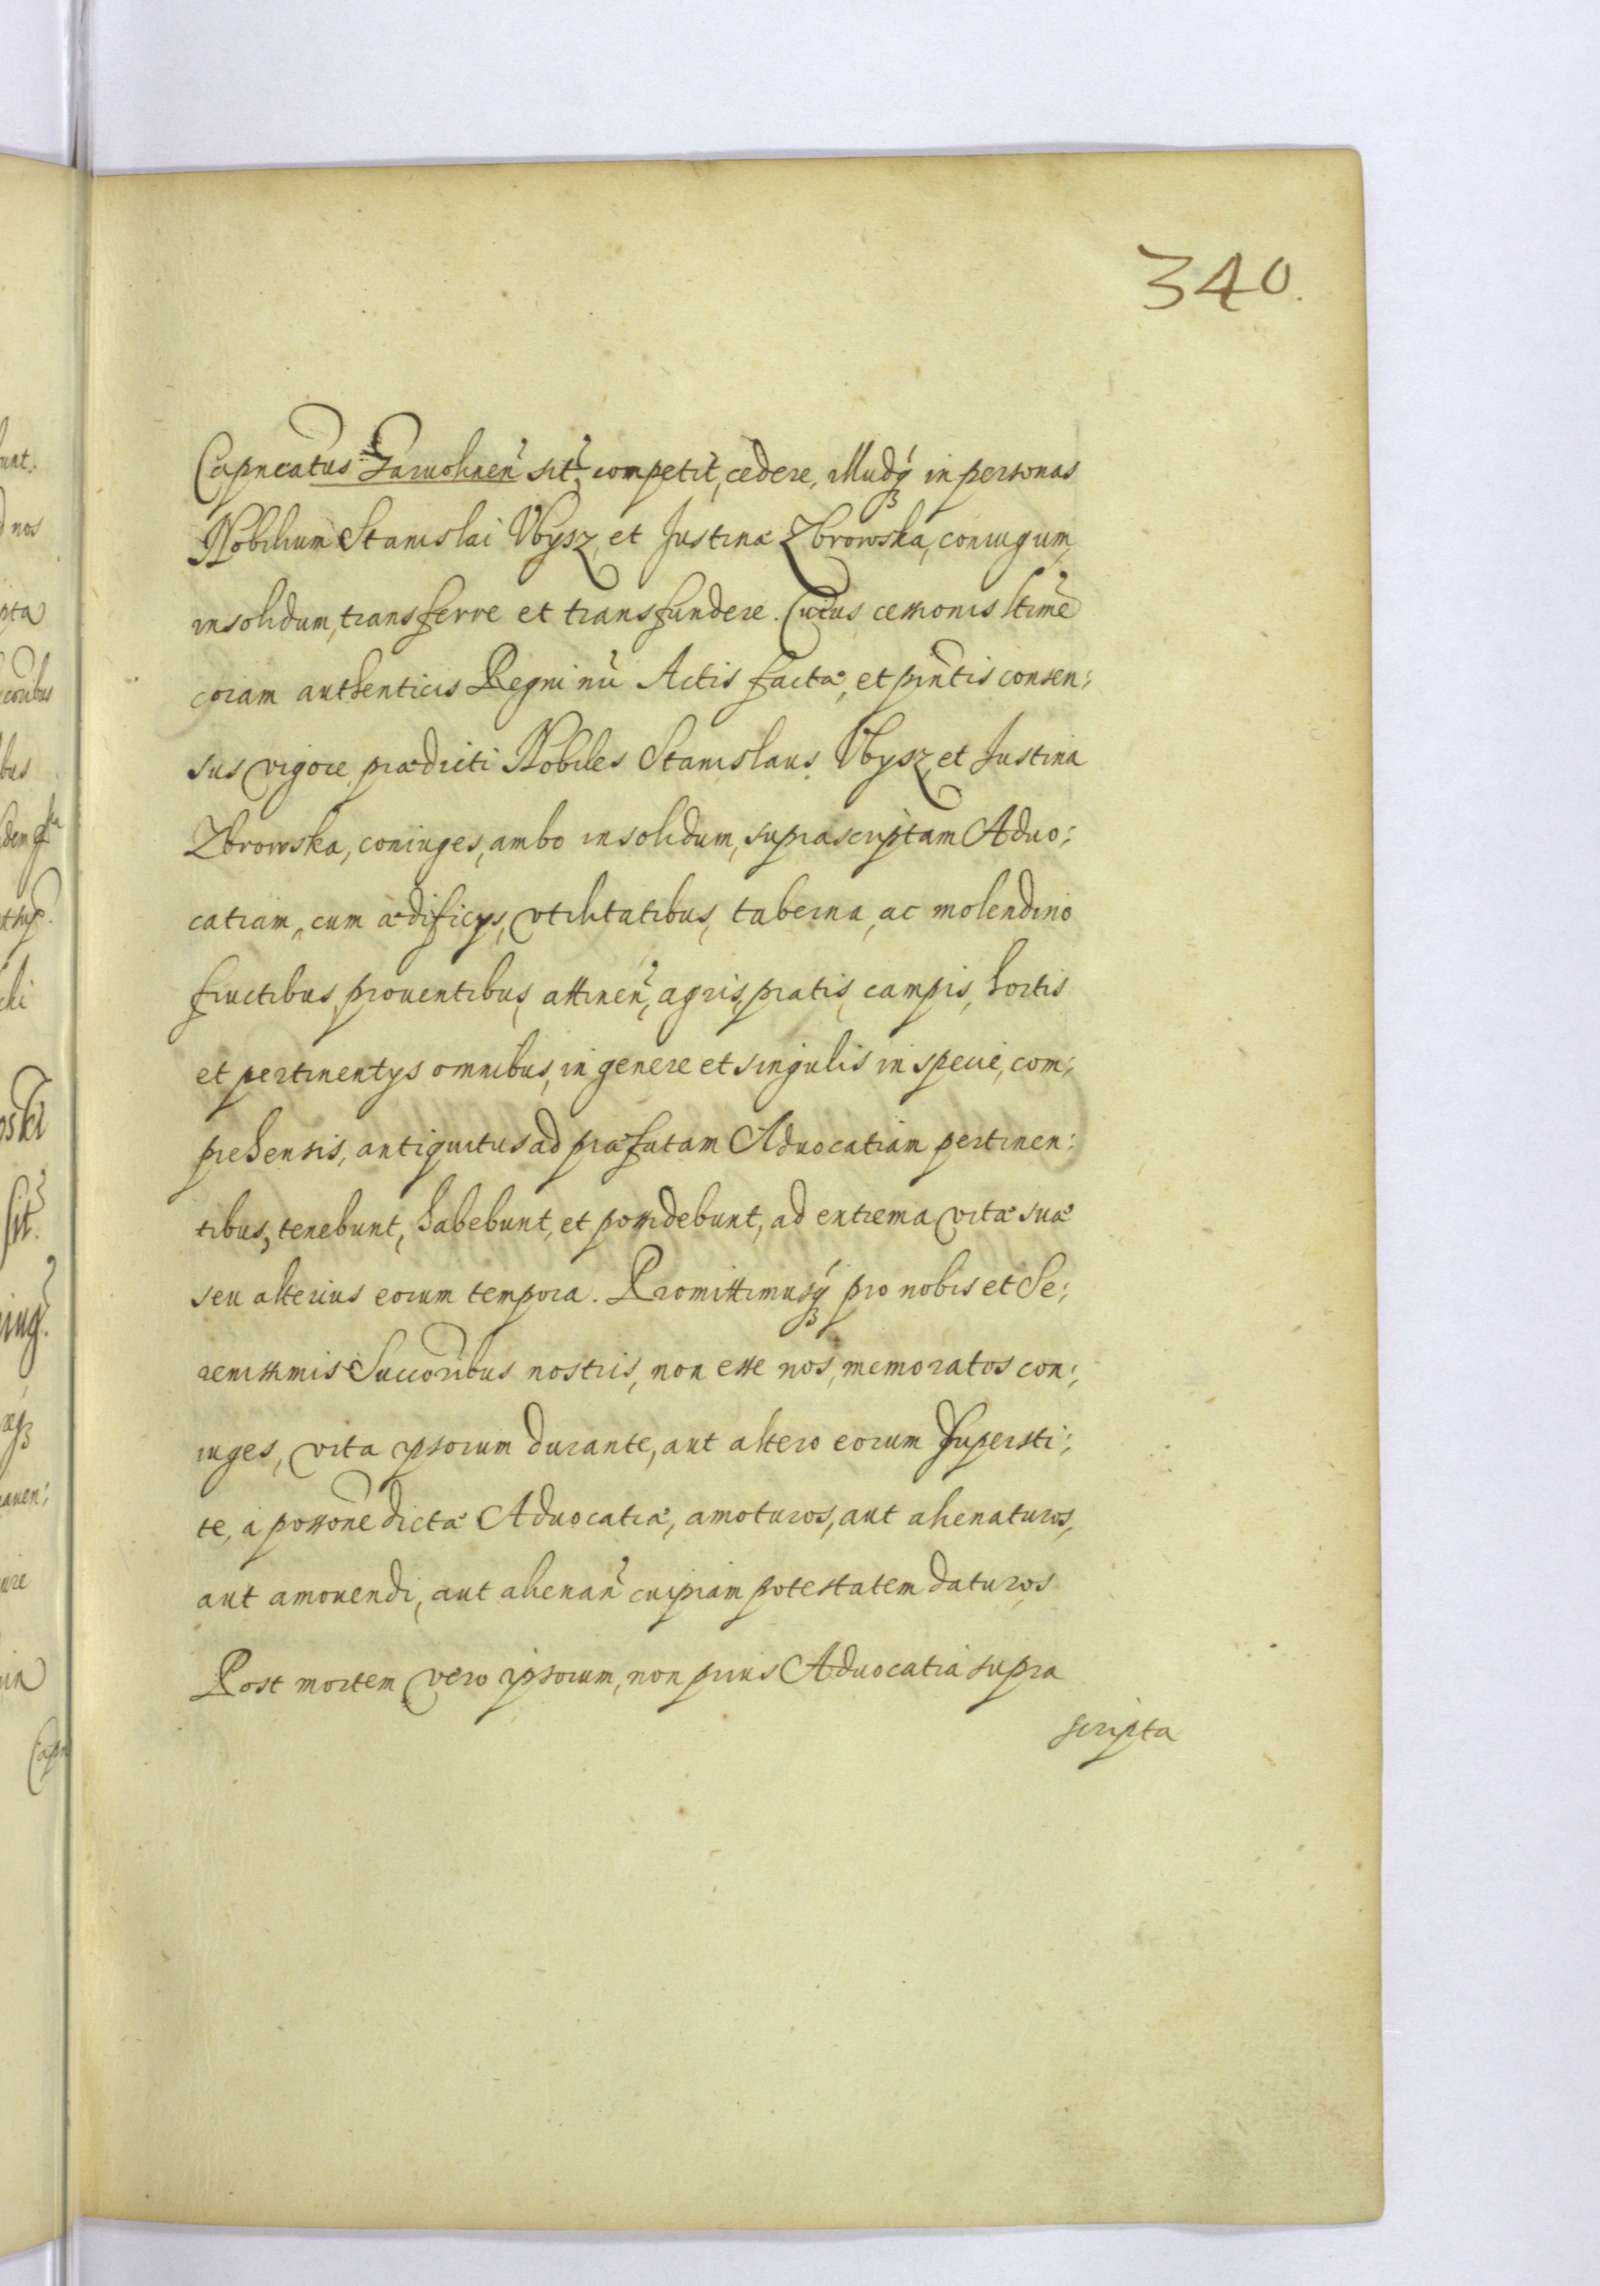 340.
Capneatus Garuolinen̄ sit̄, competit, cedere, illudq́ꝫ in personas
Nobilium Stanislai Vbysz, et Justinæ Zbrowska, coniugum,
insolidum, transferre et transfundere. Cuius cessionis ltīme
coram authenticis Regni nr̄i Actis factæ, et pn̄tis consen:
sus vigore prædicti Nobiles Stanislaus Vbysz, et Justina
Zbrowska, coniuges, ambo insolidum, suprascriptam Aduo:
catiam, cum ædificÿs, vtilitatibus, taberna, ac molendino
fructibus, prouentibus, attinen̄, agris, pratis, campis, hortis
et pertinentÿs omnibus, in genere et singulis in specie, com:
prehensis, antiquitus ad præfatam Aduocatiam pertinen:
tibus, tenebunt, habebunt, et possidebunt, ad extrema vitæ suæ
seu alterius eorum tempora. Promittimusq́ꝫ pro nobis et Se:
renissimis Succoribus nostris, non esse nos, memoratos con:
iuges, vita ipsorum durante, aut altero eorum supersti:
te, a possōne dictæ Aduocatiæ, amoturos, aut alienaturos,
aut amouendi, aut alienan̄ cuipiam potestatem daturos
Post mortem vero ipsorum, non prius Aduocatia supra
scripta